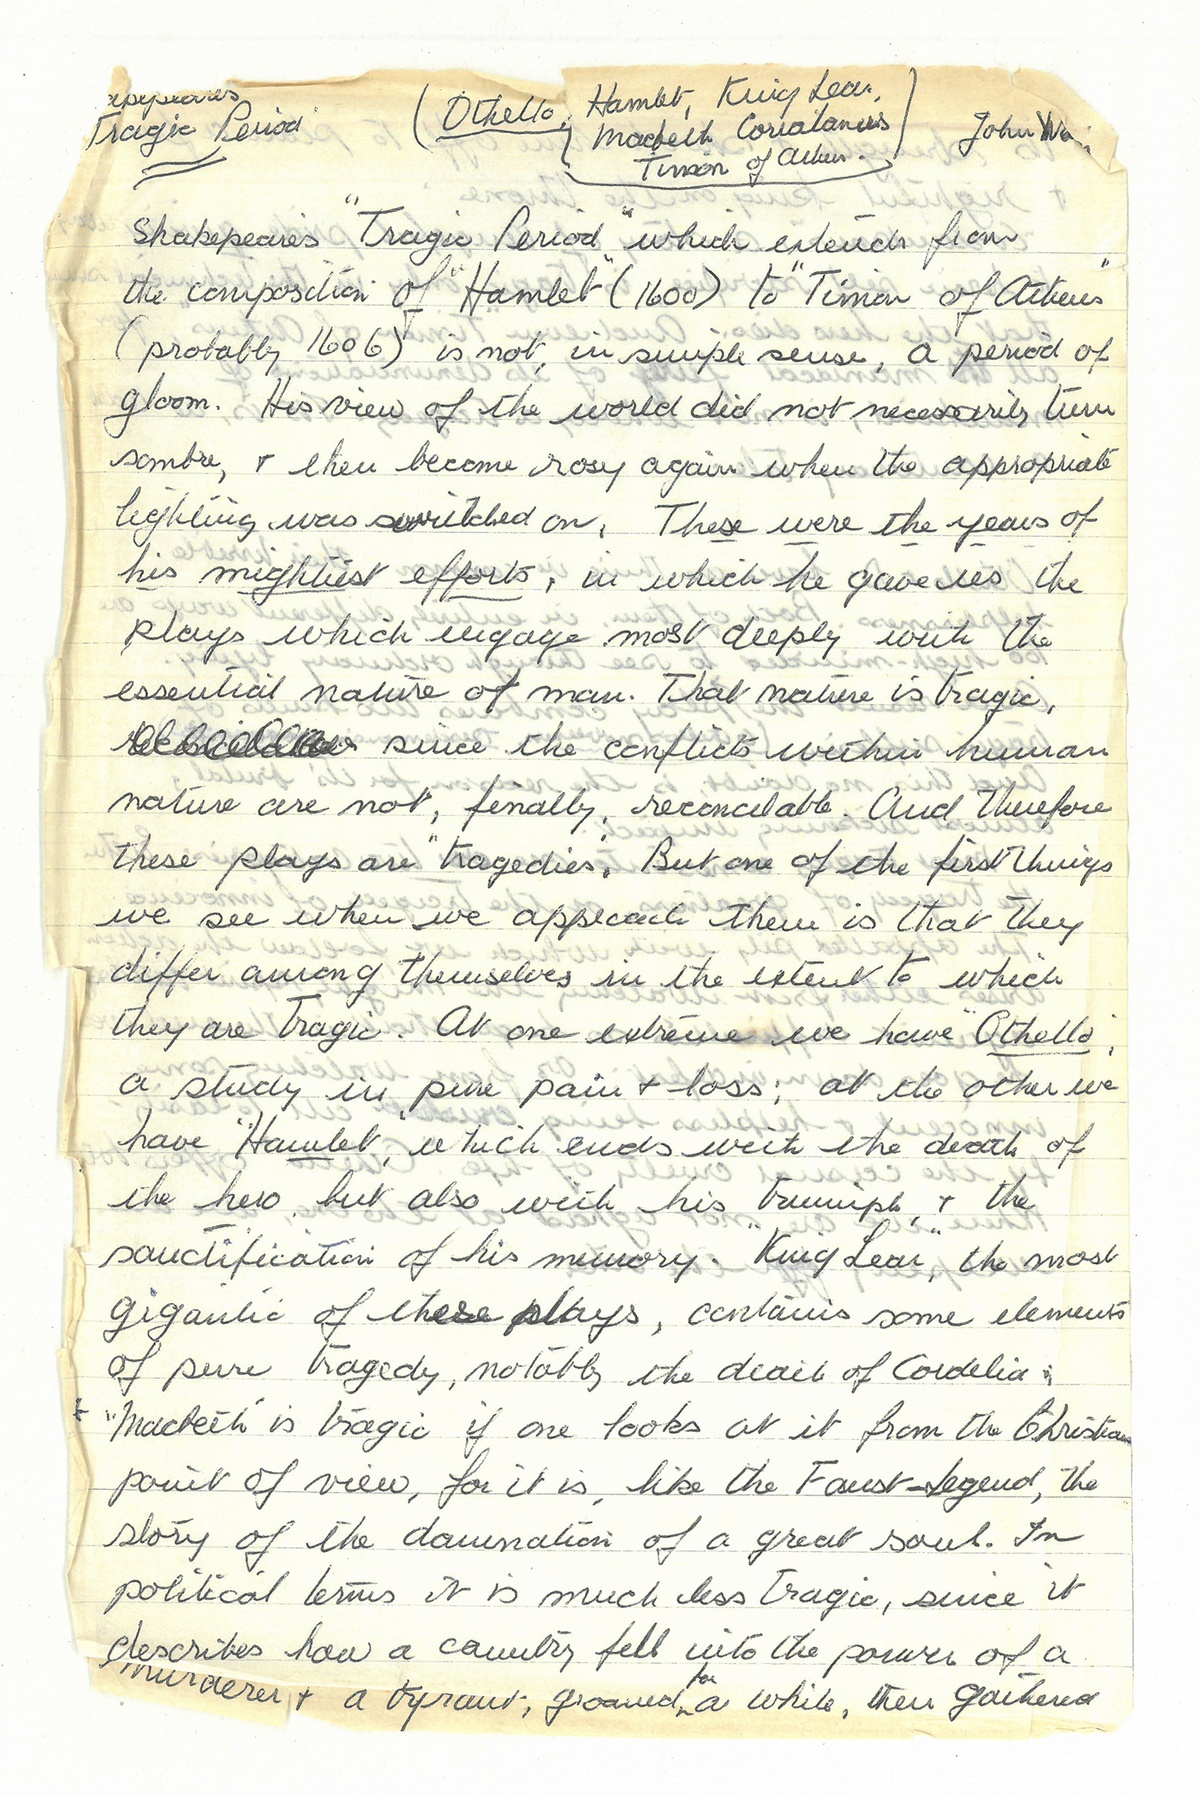 Tragic Period
(Othello, Hamlet, King Lear,
Macbeth Coriolanus
Timon of Athens.)
John
Shakespeare's "Tragic Period" which extends from
the composition of "Hamlet" (1600) to "Timon of Athens"
(probably 1606) is not, in simple sense, a period of
gloom. His view of the world did not necessarily turn
sombre, + then become rosy again when the appropriate
lighting was switched on. These were the years of
his mightiest efforts, in which he gave us the
plays which engage most deeply with the
essential nature of man. That nature is tragic,
since the conflicts within human
nature are not, finally, reconcilable. And therefore
these plays are "tragedies". But one of the first things
we see when we approach them is that they
differ among themselves in the extent to which
they are tragic. At one extreme we have "Othello",
a study in pure pain + loss; at the other we
have "Hamlet", which ends with the death of
the hero, but also with his triumph, + the
sanctification of his memory. "King Lear", the most
gigantic of these plays, contains some elements
of pure tragedy, notably the death of Cordelia;
"Macbeth" is tragic if one looks at it from the Christian
point of view, for it is, like the Faust-Legend, the
story of the damnation of a great soul. In
political terms it is much less tragic, since it
describes how a country fell into the power of a
murderer + a tyrant, groaned for a while, then gathered